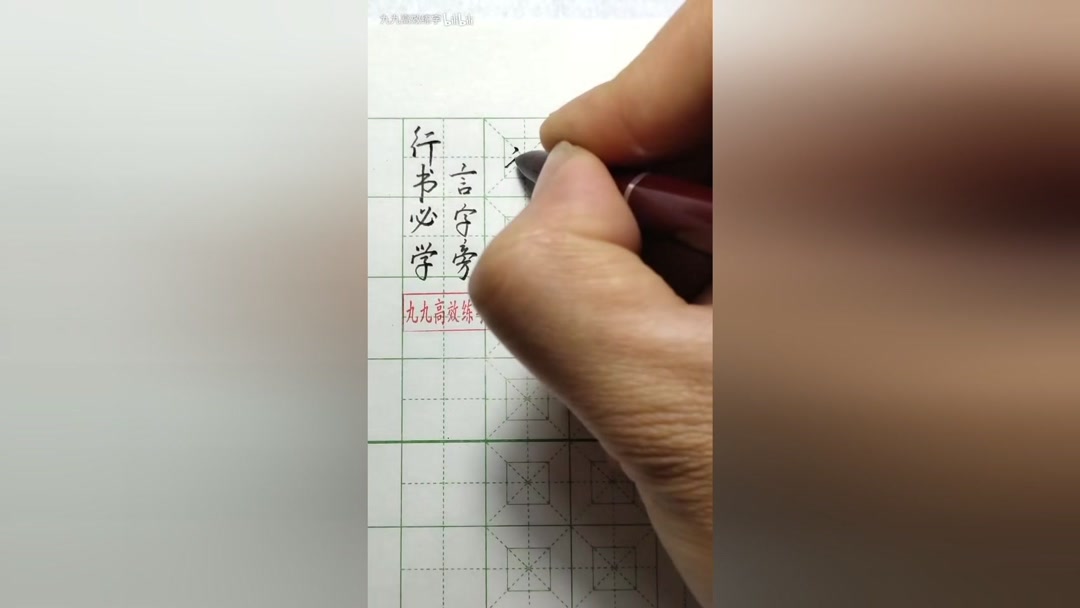 九九高效练字 bilibili
行书必学
言字旁
九九高效练